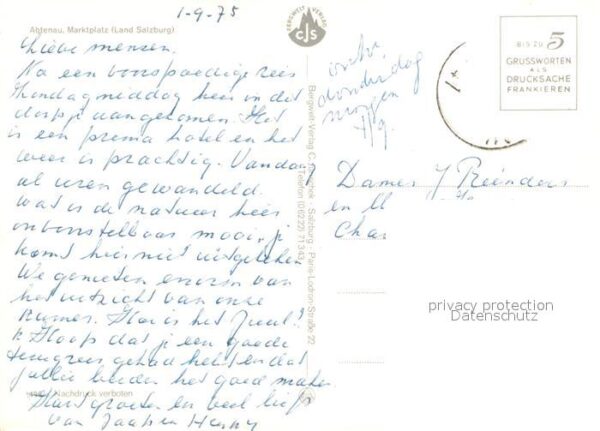 1-9-75
Abtenau, Marktplatz (Land Salzburg)
Lieve mensen.
Na een voorspoedige reis
Zondagmiddag hier in dit
dorpje aangekomen. Het
is een prima hotel en het
weer is prachtig. Vandaag
al uren gewandeld.
Wat is de natuur hier
onvoorstelbaar mooi, je
komt hier niet uitgekeken
We genieten enorm van
het uitzicht van onze
kamer. Hoe is het Juul?
Ik Hoop dat je een goede
terugreis gehad hebt en dat
jullie beiden het goed maken
Hart. groeten en veel liefs
van Jaap en Henny
Nachdruck verboten
BERGWELT VERLAG
CJS
Bergwelt-Verlag C. Salzburg - Paris-Lodron-Straße 22
Telefon (0 62 22) 71 3 43
donderdag
morgen
BIS ZU 5
GRUSSWORTEN
ALS
DRUCKSACHE
FRANKIEREN
Dames Y Reinders
en
privacy protection
Datenschutz